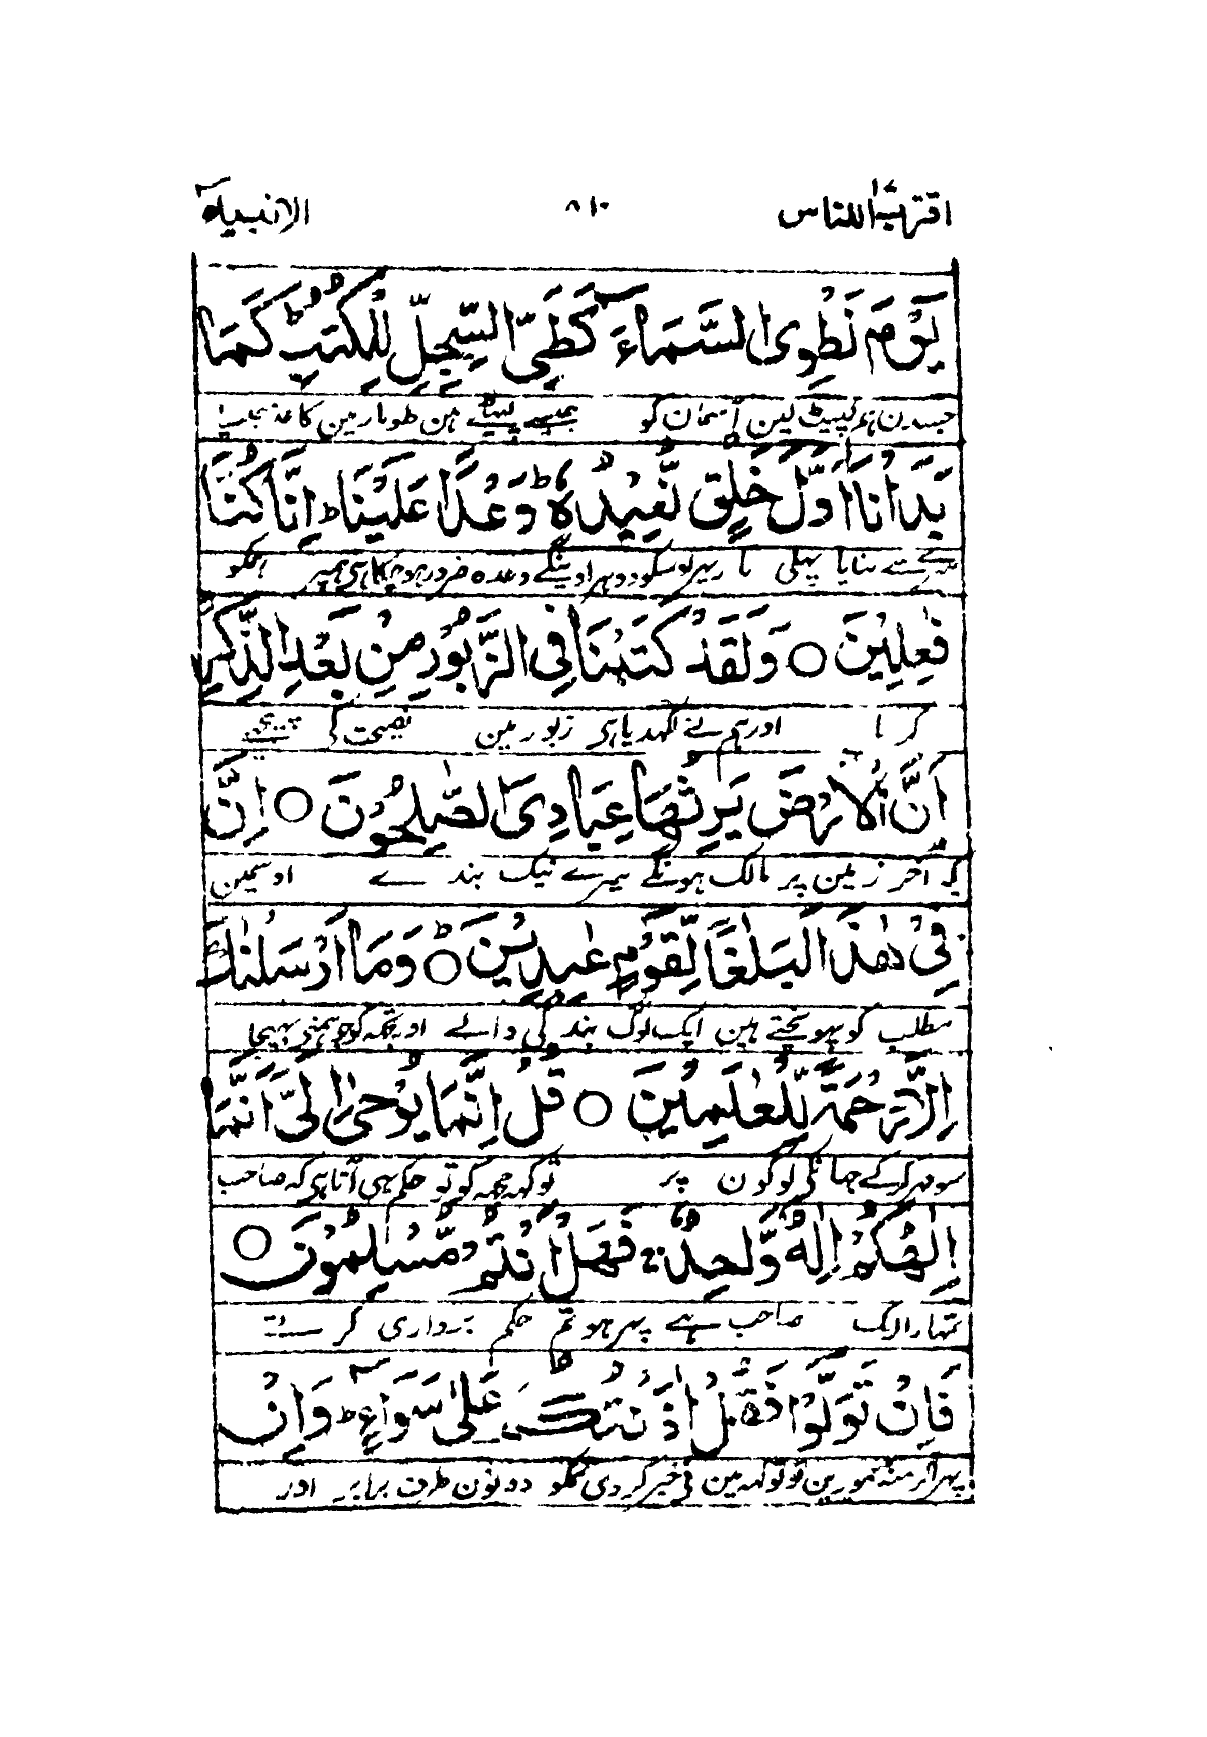 اقترب للناس ٨١٠ الانبياء
يَوْمَ نَطْوِى السَّمَآءَ كَطَىِّ السِّجِلِّ لِلْكُتُبِ ؕ كَمَا
جسدن ہم لپیٹ لین آسمان کو جیسے لپیٹتے ہین طومار مین کاغذ جیسے
بَدَاْنَآ اَوَّلَ خَلْقٍ نُّعِيْدُهٗ ؕ وَعْدًا عَلَيْنَا ؕ اِنَّا كُنَّا
سرے سے بنایا پہلی بار پہر اوسکو دوہراوینگے وعدہ ضرور ہوچکا ہی ہمپر ہمکو
فٰعِلِيْنَ ○ وَلَقَدْ كَتَبْنَا فِى الزَّبُوْرِ مِنْۢ بَعْدِ الذِّكْرِ
کرنا اور ہم نے لکہدیا ہی زبور مین نصیحت کی پیچہے
اَنَّ الْاَرْضَ يَرِثُهَا عِبَادِىَ الصّٰلِحُوْنَ ○ اِنَّ
کہ آخر زمین پر مالک ہونگے میرے نیک بندے اوسمین
فِىْ هٰذَا لَبَلٰغًا لِّقَوْمٍ عٰبِدِيْنَ ○ؕ وَمَآ اَرْسَلْنٰكَ
مطلب کو پہونچتے ہین ایک لوگ بندگی والے اور تجکو جو ہمنے بہیجا
اِلَّا رَحْمَةً لِّلْعٰلَمِيْنَ ○ قُلْ اِنَّمَا يُوْحٰٓى اِلَىَّ اَنَّمَآ
سو مہر کرکے جہان کی لوگون پر تو کہہ مجہہ کو تو حکم یہی آتا ہی کہ صاحب
اِلٰهُكُمْ اِلٰهٌ وَّاحِدٌ ۚ فَهَلْ اَنْتُمْ مُّسْلِمُوْنَ ○
تمہارا ایک صاحب ہے پہر ہو تم حکم برداری کرتے
فَاِنْ تَوَلَّوْا فَقُلْ اٰذَنْتُكُمْ عَلٰى سَوَآءٍ ؕ وَاِنْ
پہر اگر منہ موڑین تو تو کہہ مین نی خبر کردی تمکو دونون طرف برابر اور